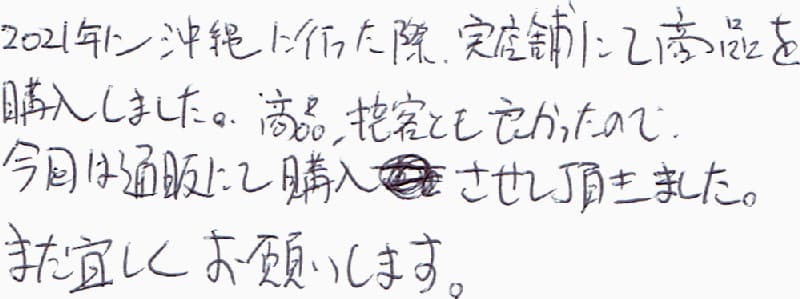 2021年に沖縄に行った際、実店舗にて商品を
購入しました。商品、接客とも良かったので、
今回は通販にて購入させて頂きました。
また宜しくお願いします。